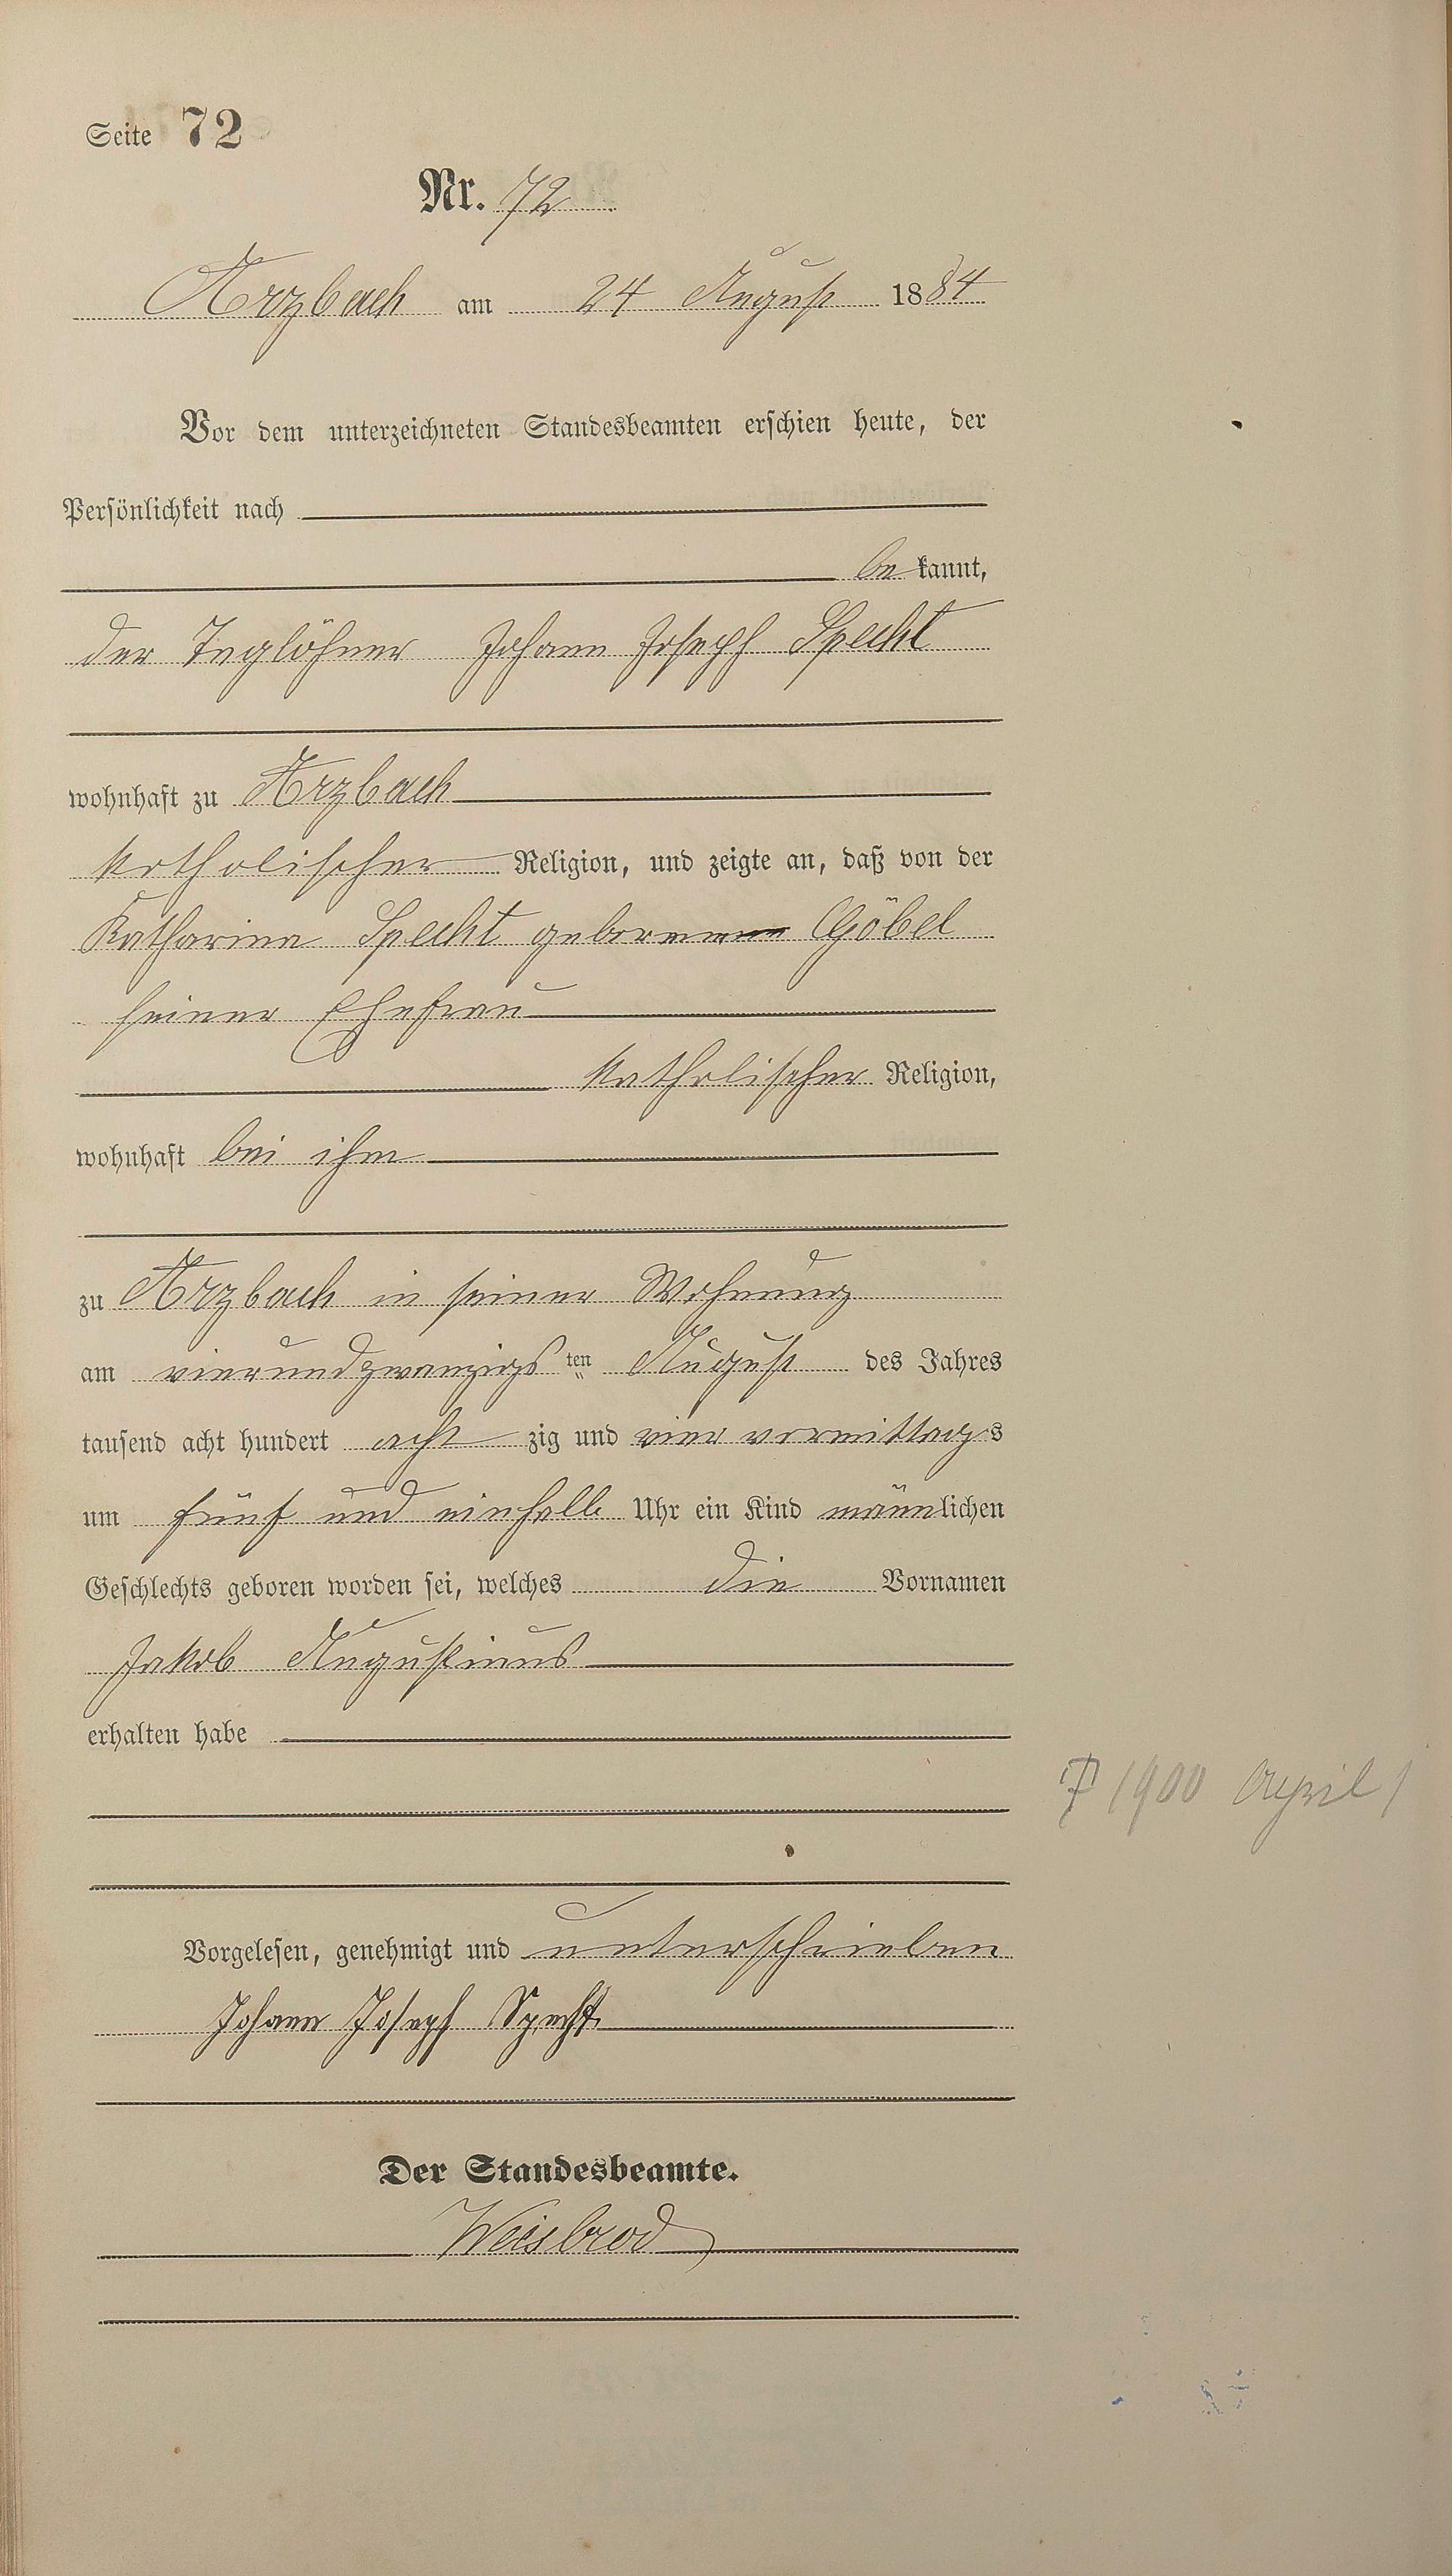 Seite 72
Nr. 72
Arzbach am 24 August 1884
Vor dem unterzeichneten Standesbeamten erschien heute, der
Persönlichkeit nach
be kannt,
der Taglöhner Johann Joseph Specht
wohnhaft zu Arzbach
katholischer Religion, und zeigte an, daß von der
Katharina Specht geborenen Göbel
seiner Ehefrau
katholischer Religion,
wohnhaft bei ihm
zu Arzbach in seiner Wohnung
am vierundzwanzigsten August des Jahres
tausend acht hundert acht zig und vier vormittags
um fünf und einhalb Uhr ein Kind männlichen
Geschlechts geboren worden sei, welches die Vornamen
Jakob Augustinus
erhalten habe
† 1900 April 1
Vorgelesen, genehmigt und unterschrieben
Johann Joseph Specht
Der Standesbeamte.
Weisbrod